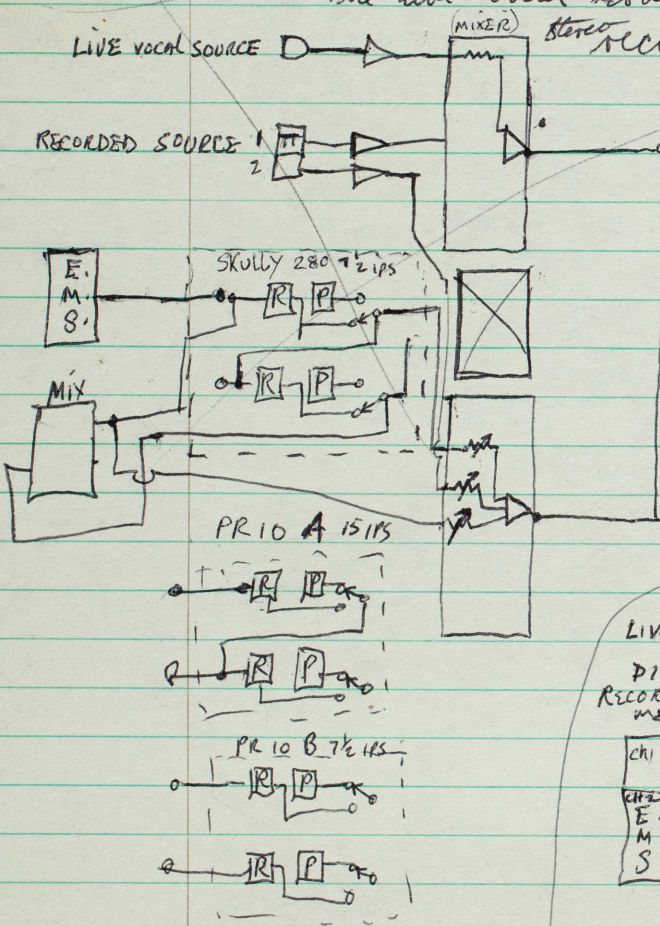 (MIXER) Stereo
LIVE VOCAL SOURCE
RECORDED SOURCE 1
2
E.
M.
S.
SKULLY 280 7½ IPS
R P
R P
MIX
PR 10 A 15 IPS
R P
R P
LIV
RECOR
PR 10 B 7½ IPS
R P
R P
ch1
CH2
E.
M
S